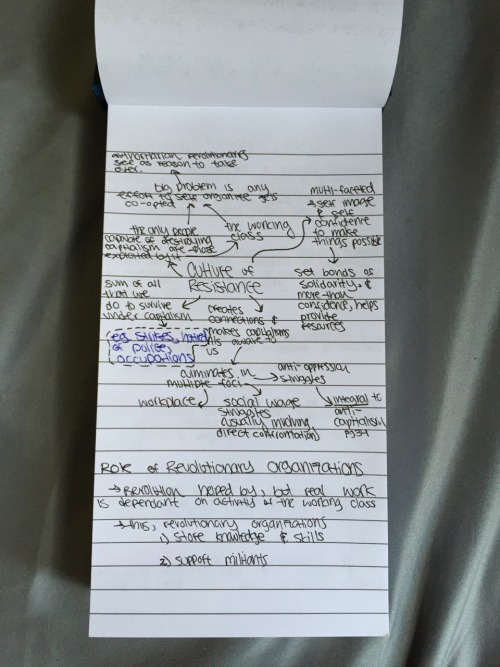 authoritarian revolutionaries
see as reason to take
over.
big problem is any
effort to self organise gets
co-opted
the only people
capable of destroying
capitalism are those
exploited by it
the working
class
multi-faceted
→ self image
& self
confidence
to make
things possible
Culture of
Resistance
sum of all
that we
do to survive
under capitalism
eg strikes, hatred
of police,
occupations
creates
connections &
makes capitalisms
ills aware to
us
set bonds as
solidarity &
more than
confidence, helps
provide
resources
culminates in
multiple foci
→ anti-oppression
struggles
workplace
social wage
struggles
(usually involving
direct confrontation)
integral to
anti-
capitalism
pg 34
Role of Revolutionary Organisations
→ Revolution helped by, but real work
is dependant on activity of the working class
→ thus, revolutionary organisations
1) store knowledge & skills
2) support militants